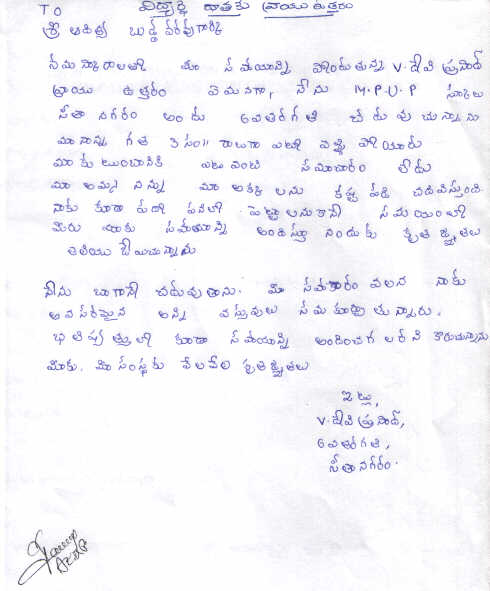 TO విద్యార్థి దాతకు వ్రాయు ఉత్తరం
శ్రీ ఆదిత్య బుడ్డవరపుగారికి
నమస్కారాలతో మీ సహాయాన్ని పొందుతున్న V. దేవి ప్రసాద్
వ్రాయు ఉత్తరం ఏమనగా, నేను M.P.U.P స్కూలు
సీతానగరం నందు 6వ తరగతి చదువుచున్నాను
మా నాన్న గత 3 సం॥ రాలుగా ఎటో వెళ్ళి పోయారు
మాకు ఇంటికి ఎటువంటి సమాచారం లేదు
మా అమ్మ నన్ను మా అక్కలను కష్టపడి చదివిస్తుంది.
నాకు కూడా ఏదో పనిలో పెట్టాలనుకొనే సమయంలో
మీరు నాకు సహాయాన్ని అందిస్తూ నందుకు కృతజ్ఞతలు
తెలియ చేయుచున్నాను
నేను బాగానే చదువుతాను. మీ సహకారం వలన నాకు
అవసరమైన అన్ని వస్తువులు సమకూర్చుతున్నారు.
భవిష్యత్తులో కూడా సహాయాన్ని అందించగలరని కోరుచున్నాను
మీకు. మీ సంస్థకు వేలవేల కృతజ్ఞతలు
ఇట్లు,
V. దేవి ప్రసాద్,
6వ తరగతి,
సీతానగరం.